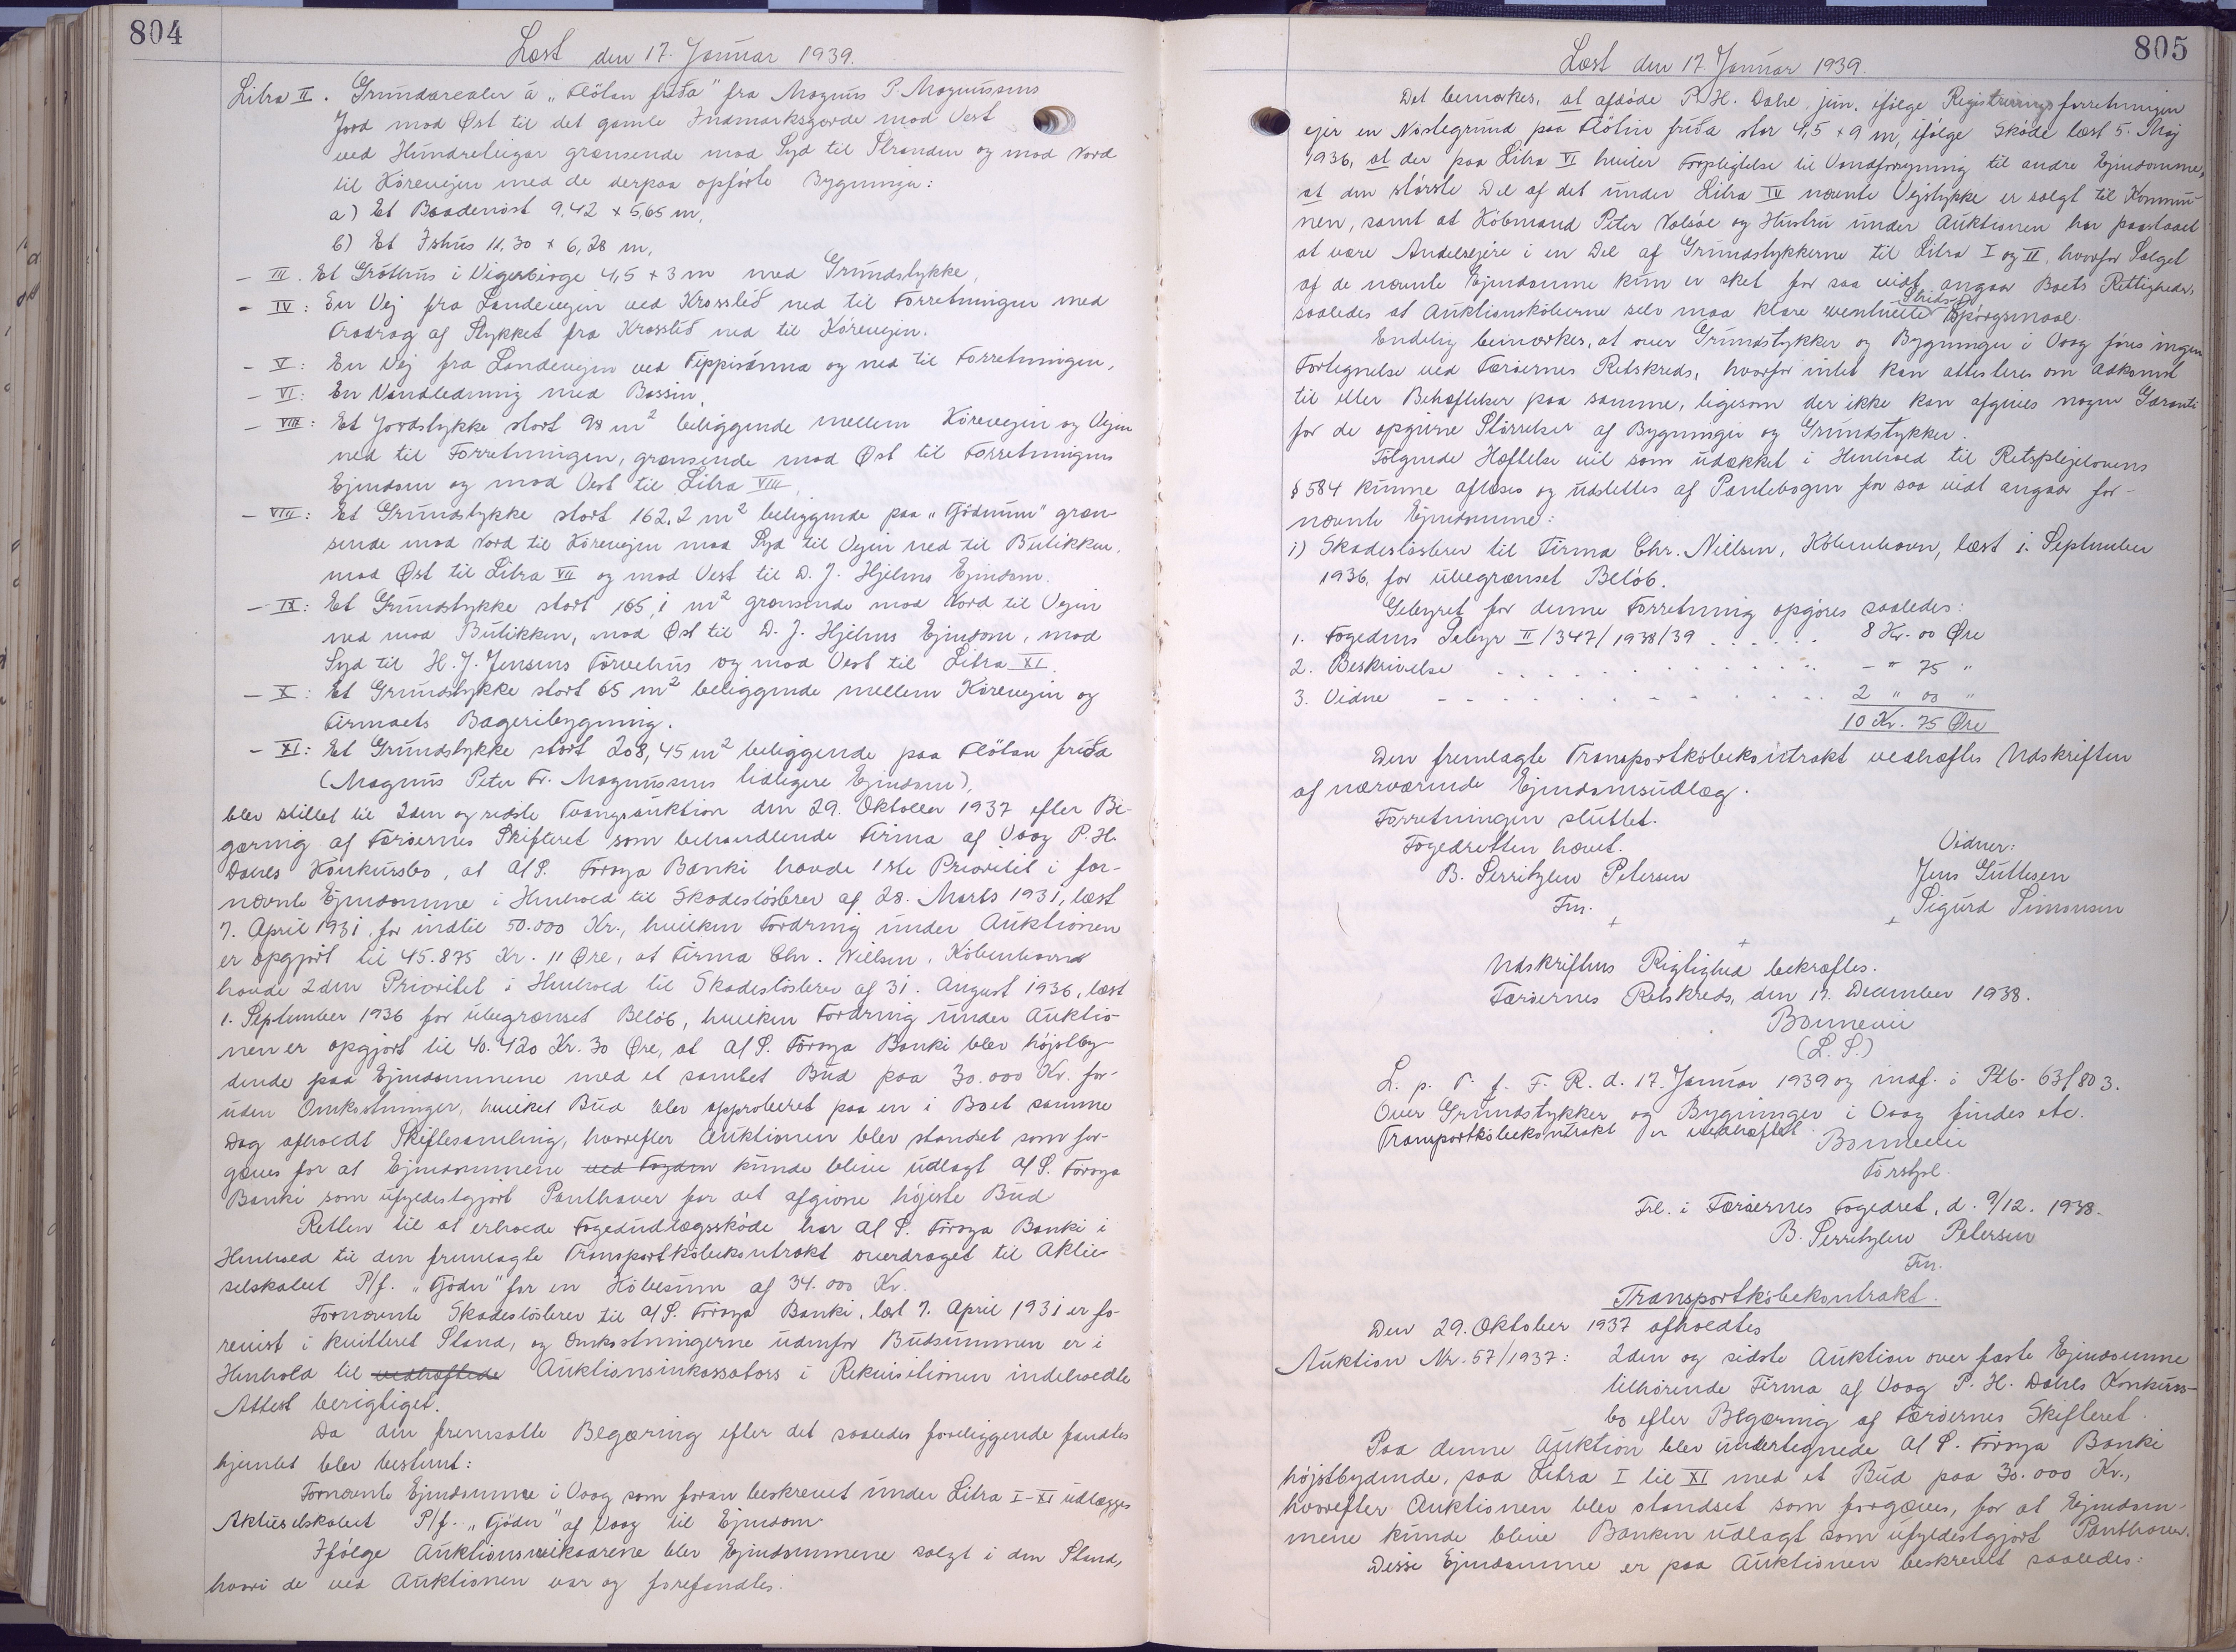 804
Læst den 17. Januar 1939.
Litra II. Grundarealer á „Flötan fríða" fra Magnus P. Magnussens
Jord mod Øst til det gamle Indmarksgærde mod Vest
ved Hundreteigar grænsende mod Syd til Stranden og mod Nord
til Körevejen med de derpaa opförte Bygninger:
a) Et Baadenöst 9,42 x 5,65 m,
b) Et Ishus 11,30 x 6,28 m,
- III. Et Gróthus i Vigerbirge 4,5 x 3 m med Grundstykke,
- IV: En Vej fra Landevejen ved Krosslið ned til Forretningen med
Fradrag af Stykket fra Krosslið ned til Körevejen.
- V: En Vej fra Landevejen ved Tippisánna og ned til Forretningen,
- VI: En Vandledning med Bassin,
- VII: Et Jordstykke stort 98 m² beliggende mellem Körevejen og Vejen
ned til Forretningen, grænsende mod Øst til Forretningens
Ejendom og mod Vest til Litra VIII,
- VIII: Et Grundstykke stort 162,2 m² beliggende paa „Gödnum" græn-
sende mod Nord til Körevejen mod Syd til Vejen ned til Butikken,
mod Øst til Litra VII og mod Vest til D. J. Hjelms Ejendom.
- IX: Et Grundstykke stort 165,1 m² grænsende mod Nord til Vejen
ned mod Butikken, mod Øst til D. J. Hjelms Ejendom, mod
Syd til H. J. Jensens Törvehus og mod Vest til Litra XI.
- X: Et Grundstykke stort 65 m² beliggende mellem Körevejen og
Firmaets Bageribygning.
- XI: Et Grundstykke stort 208,45 m² beliggende paa Flötan fríða
(Magnus Peter Fr. Magnussens tidligere Ejendom),
blev stillet til 2den og sidste Tvangsauktion den 29. Oktober 1937 efter Be-
gæring af Færöernes Skifteret som behandlende Firma af Vaag P. H.
Dahls Konkursbo, at A/S. Föroya Banki havde 1ste Prioritet i for-
nævnte Ejendomme i Henhold til Skadeslösbrev af 28. Marts 1931, læst
7. April 1931, for indtil 50.000 Kr., hvilken Fordring under Auktionen
er opgjort til 45.875 Kr. 11 Øre, at Firma Chr. Nielsen, Köbenhavn
havde 2den Prioritet i Henhold til Skadeslösbrev af 31. August 1936, læst
1. September 1936 for ubegrænset Belöb, hvilken Fordring under Auktio-
nen er opgjort til 40.420 Kr. 30 Øre, at A/S. Föroya Banki blev höjstby-
dende paa Ejendommene med et samlet Bud paa 30.000 Kr. for-
uden Omkostninger, hvilket Bud blev approberet paa en i Boet samme
Dag afholdt Skiftesamling, hvorefter Auktionen blev standset som for-
gæves for at Ejendommene ved Fogden kunde blive udlagt A/S. Föroya
Banki som ufyldestgjort Panthaver for det afgivne höjeste Bud
Retten til at erholde Fogedudlægsskøde har A/S. Föroya Banki i
Henhold til den fremlagte Transportköbekontrakt overdraget til Aktie-
selskabet P/f. „Gödn" for en Köbesum af 34.000 Kr.
Fornævnte Skadeslösbrev til A/S. Föroya Banki, læst 7. April 1931 er fo-
revist i kvitteret Stand, og Omkostningerne udenfor Budsummen er i
Henhold til vedhæftede Auktionsinkassators i Rekvisitionen indeholdte
Attest berigtiget.
Da den fremsatte Begæring efter det saaledes foreliggende fandtes
hjemlet blev bestemt:
Fornævnte Ejendomme i Vaag som foran beskrevet under Litra I-XI udlægges
Aktieselskabet P/f. „Gödn" af Vaag til Ejendom.
Ifölge Auktionsvilkaarene blev Ejendommene solgt i den Stand,
hvori de ved Auktionen var og forefandtes.
805
Læst den 17. Januar 1939.
Det bemærkes, at afdöde P. H. Dahl, jun. ifölge Registreringsforretningen
ejer en Nöstegrund paa Flötin fríða stor 4,5 x 9 m, ifölge Sköde læst 5. Maj
1936, at der paa Litra VI hviler Forpligtelse til Vandforsyning til andre Ejendomme,
at den störste Del af det under Litra IV nævnte Vejstykke er solgt til Kommu-
nen, samt at Köbmand Peter Valsöe og Hustru under Auktionen har paastaaet
at være Andelsejere i en Del af Grundstykkerne til Litra I og II, hvorfor Salget
af de nævnte Ejendomme kun er sket for saa vidt angaar Boets Rettigheder,
saaledes at Auktionsköberne selv maa klare eventuelle Strids- Spörgsmaal.
Endelig bemærkes, at over Grundstykker og Bygninger i Vaag föres ingen
Fortegnelse ved Færöernes Retskreds, hvorfor intet kan attesteres om Adkomst
til eller Behæftelser paa samme, ligesom der ikke kan afgives nogen Garanti
for de opgivne Störrelser af Bygninger og Grundstykker.
Fölgende Hæftelse vil som udækket i Henhold til Retsplejelovens
§ 584 kunne aflæses og udslettes af Pantebogen for saa vidt angaar for-
nævnte Ejendomme:
1) Skadeslösbrev til Firma Chr. Nielsen, Köbenhavn, læst 1. September
1936, for ubegrænset Belöb.
Gebyret for denne Forretning opgöres saaledes:
1. Fogedens Gebyr II/347/1938/39 . . . . . . 8 Kr. 00 Øre
2. Beskrivelse . . . . . . . . . . . - " 75 "
3. Vidne - - - - - - - - - - - 2 " 00 "
10 Kr. 75 Øre
Den fremlagte Transportköbekontrakt vedhæftes Udskriften
af nærværende Ejendomsudlæg.
Forretningen sluttet.
Fogedretten hævet. Vidner:
B. Serritzlew Petersen Jens Guttesen
Fm. Sigurd Simonsen
Udskriftens Rigtighed bekræftes.
Færöernes Retskreds, den 17. December 1938.
Bonnevie
(L. S.)
L. p. T. f. F. R. d. 17. Januar 1939 og indf. i Ptb. 63 f 803.
Over Grundstykker og Bygninger i Vaag findes etc.
Transportköbekontrakt er vedhæftet.
Bonnevie
Forstpl.
Frl. i Færöernes Fogedret, d. 9/12. 1938.
B. Serritzlew Petersen
Fm.
Transportköbekontrakt.
Den 29. Oktober 1937 afholdtes
Auktion Nr. 57/1937: 2den og sidste Auktion over faste Ejendomme
tilhörende Firma af Vaag P. H. Dahls Konkurs-
bo efter Begæring af Færöernes Skifteret.
Paa denne Auktion blev undertegnede A/S. Föroya Banki
höjstbydende, paa Litra I til XI med et Bud paa 30.000 Kr.,
hvorefter Auktionen blev standset som forgæves, for at Ejendom-
mene kunde blive Banken udlagt som ufyldestgjort Panthaver.
Disse Ejendomme er paa Auktionen beskrevet saaledes: